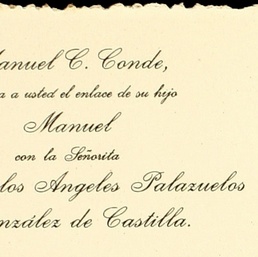 Manuel C. Conde,
a usted el enlace de su hijo
Manuel
con la Señorita
los Angeles Palazuelos
González de Castilla.